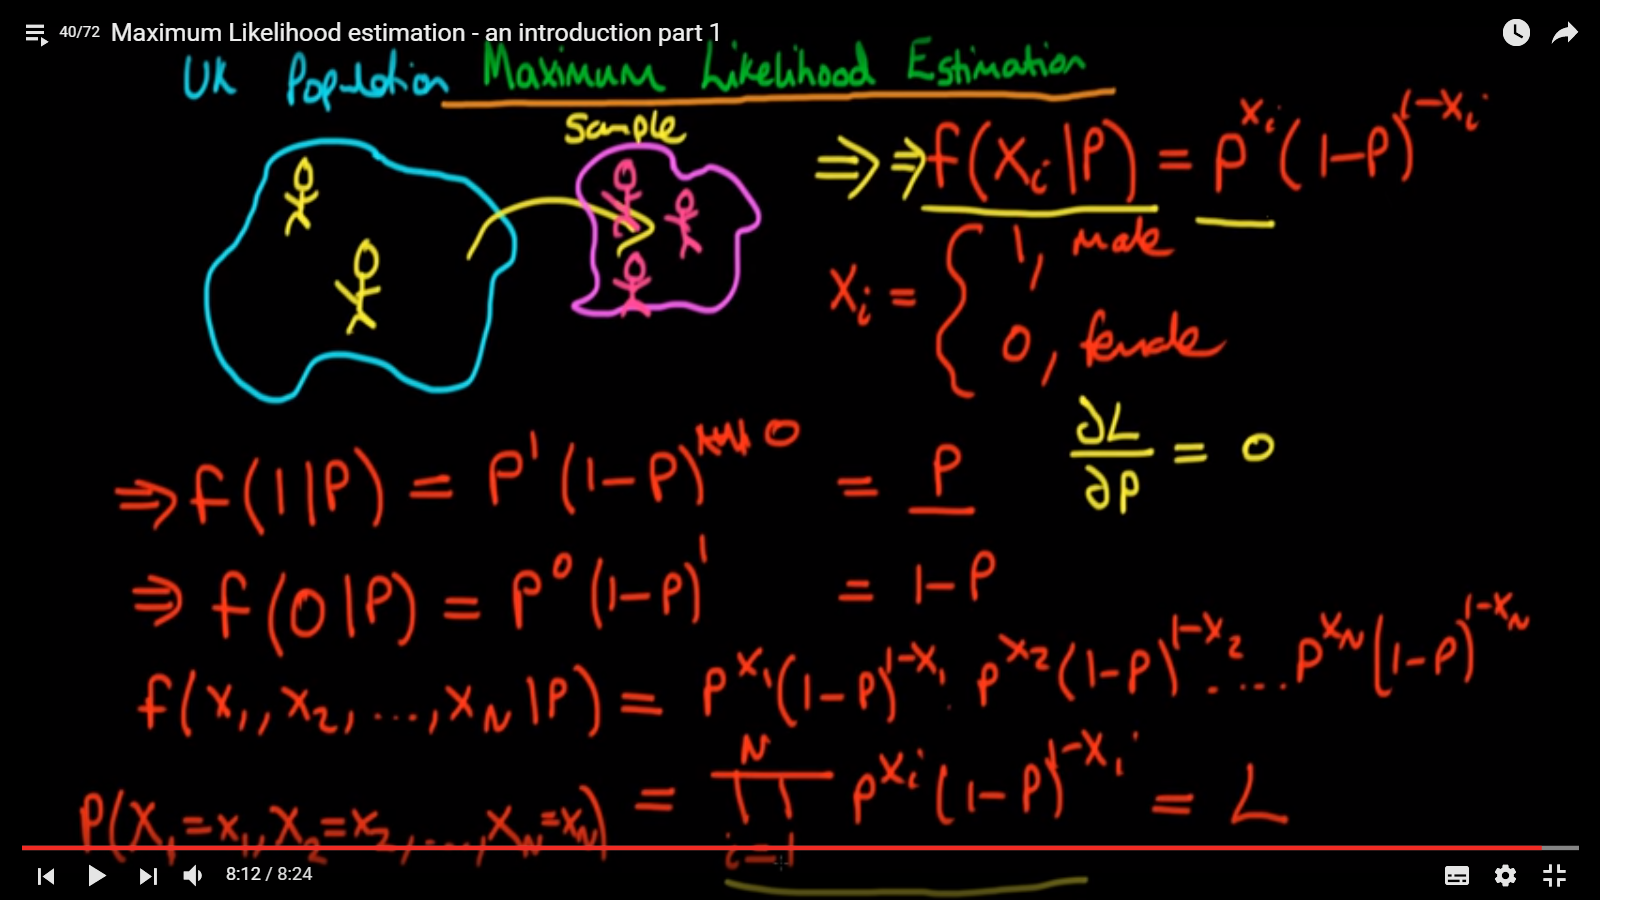 40/72 Maximum Likelihood estimation - an introduction part 1
UK Population Maximum Likelihood Estimation
Sample
⇒ ⇒ f(Xᵢ|P) = P^Xᵢ (1-P)^1-Xᵢ
Xᵢ = { 1, male
0, female
∂L/∂P = 0
⇒ f(1|P) = P¹(1-P)⁰ = P
⇒ f(0|P) = P⁰(1-P)¹ = 1-P
f(x₁, x₂, ..., x_N|P) = P^X₁ (1-P)^1-X₁ . P^X₂ (1-P)^1-X₂ ..... P^X_N (1-P)^1-X_N
P(X₁=x₁, X₂=x₂, ..., X_N=x_N) = ∏ᵢ₌₁^N P^Xᵢ (1-P)^1-Xᵢ = L
8:12 / 8:24